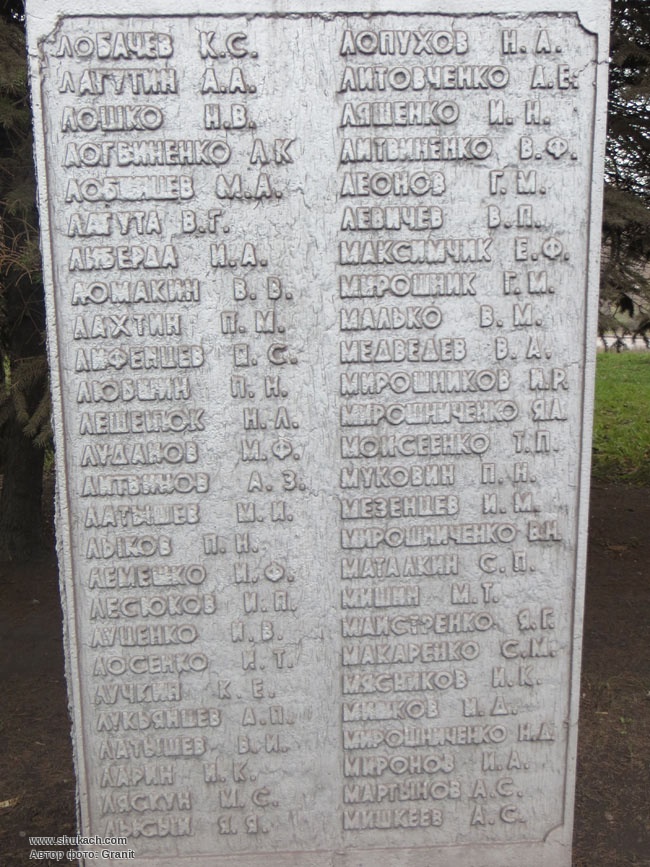 ЛОБАЧЕВ К.С.
ЛАГУТИН А.А.
ЛОШКО Н.В.
ЛОГВИНЕНКО Л.К
ЛОБЫНЦЕВ М.А.
ЛАГУТА В.Г.
ЛЫБЕРДА И.А.
ЛОМАКИН В.В.
ЛАХТИН П.М.
ЛИФЕНЦЕВ П.С.
ЛЮБЫШИН П.Н.
ЛЕЩЕНЮК Н.Л.
ЛУДАНОВ М.Ф.
ЛИТВИНОВ А.З.
ЛАТЫШЕВ М.И.
ЛЫКОВ П.Н.
ЛЕМЕШКО И.Ф.
ЛЕСЮКОВ И.П.
ЛУЦЕНКО И.В.
ЛОСЕНКО И.Т.
ЛУЧКИН К.Е.
ЛУКЬЯНЦЕВ Д.П.
ЛАТЫШЕВ В.И.
ЛАРИН И.К.
ЛЯСКУН М.С.
ЛЫСЫЙ Я.Я.
ЛОПУХОВ Н.А.
ЛИТОВЧЕНКО А.Е.
ЛЯШЕНКО И.Н.
ЛИТВИНЕНКО В.Ф.
ЛЕОНОВ Г.М.
ЛЕВИЧЕВ В.П.
МАКСИМЧИК Е.Ф.
МИРОШНИК Г.М.
МАЛЬКО В.М.
МЕДВЕДЕВ В.А.
МИРОШНИКОВ И.Р.
МИРОШНИЧЕНКО Я.А.
МОИСЕЕНКО Т.П.
МУКОВИН П.Н.
МЕЗЕНЦЕВ И.М.
МИРОШНИЧЕНКО В.Н.
МАТАЛКИН С.П.
МИШИН М.Т.
МАЙСТРЕНКО Я.Г.
МАКАРЕНКО С.М.
МЯСНИКОВ И.К.
МИШКОВ И.Д.
МИРОШНИЧЕНКО Н.Д.
МИРОНОВ И.А.
МАРТЫНОВ А.С.
МИШКЕЕВ А.С.
www.shukach.com
Автор фото: Granit